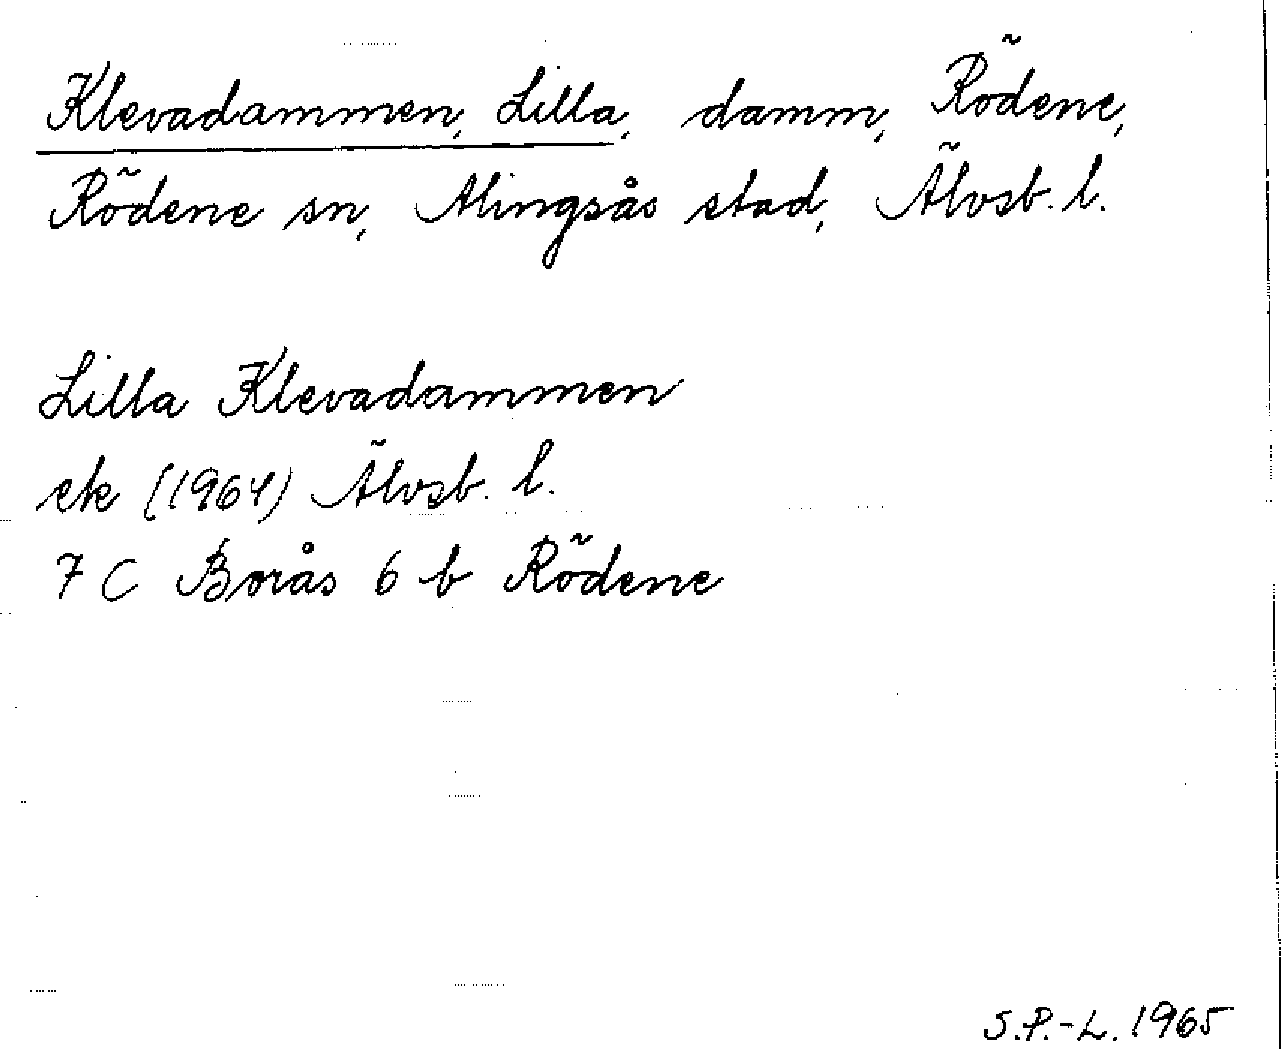 Klevadammen, Lilla, damm, Rödene,
Rödene sn, Alingsås stad, Älvsb. l.
Lilla Klevadammen
ek (1964) Älvsb. l.
7 C Borås 6 b Rödene
S.P.-L. 1965